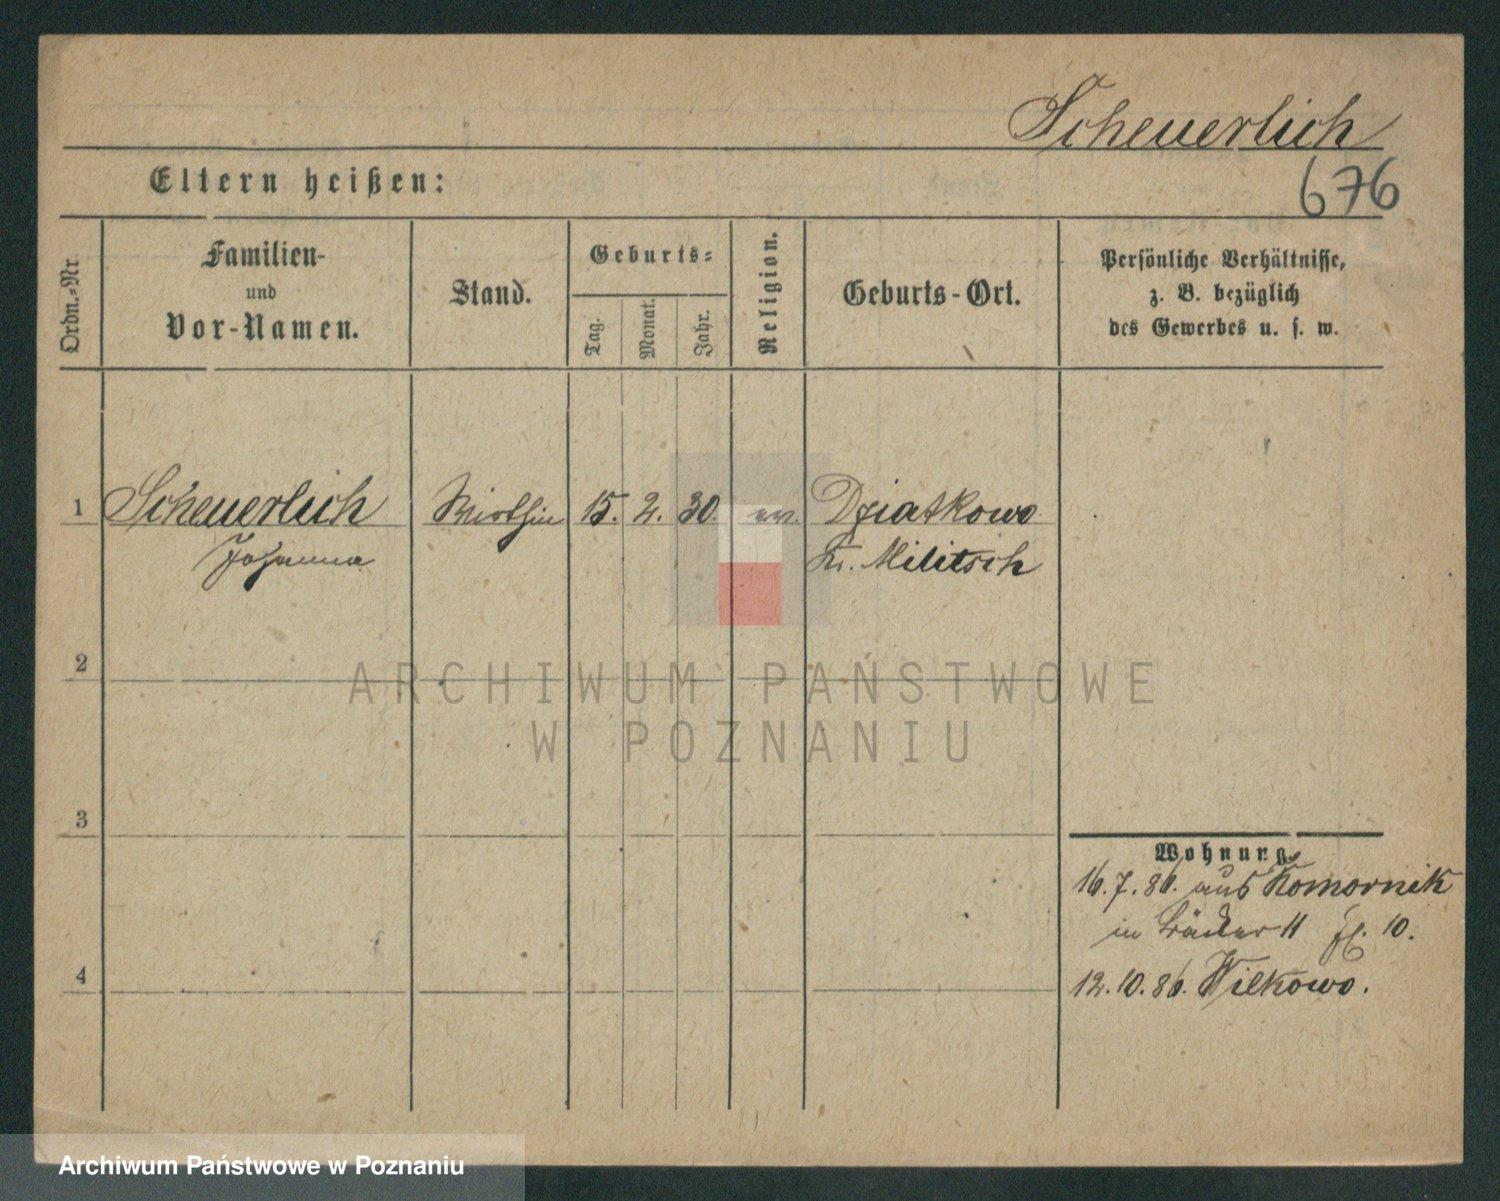 Scheuerlich
676
Eltern heißen:
Ordn.-Nr.
Familien-
und
Vor-Namen.
Stand.
Geburts-
Tag.
Monat.
Jahr.
Religion.
Geburts-Ort.
Persönliche Verhältnisse,
z. B. bezüglich
des Gewerbes u. s. w.
1 Scheuerlich Wirthin 15. 2. 30. ev. Dziatkowo
Johanna Kr. Militsch
2
3
4
Wohnung
16.7.86. aus Komornik
in Bäcker 11 fl. 10.
12.10.86. Wilkowo.
ARCHIWUM PAŃSTWOWE
W POZNANIU
Archiwum Państwowe w Poznaniu